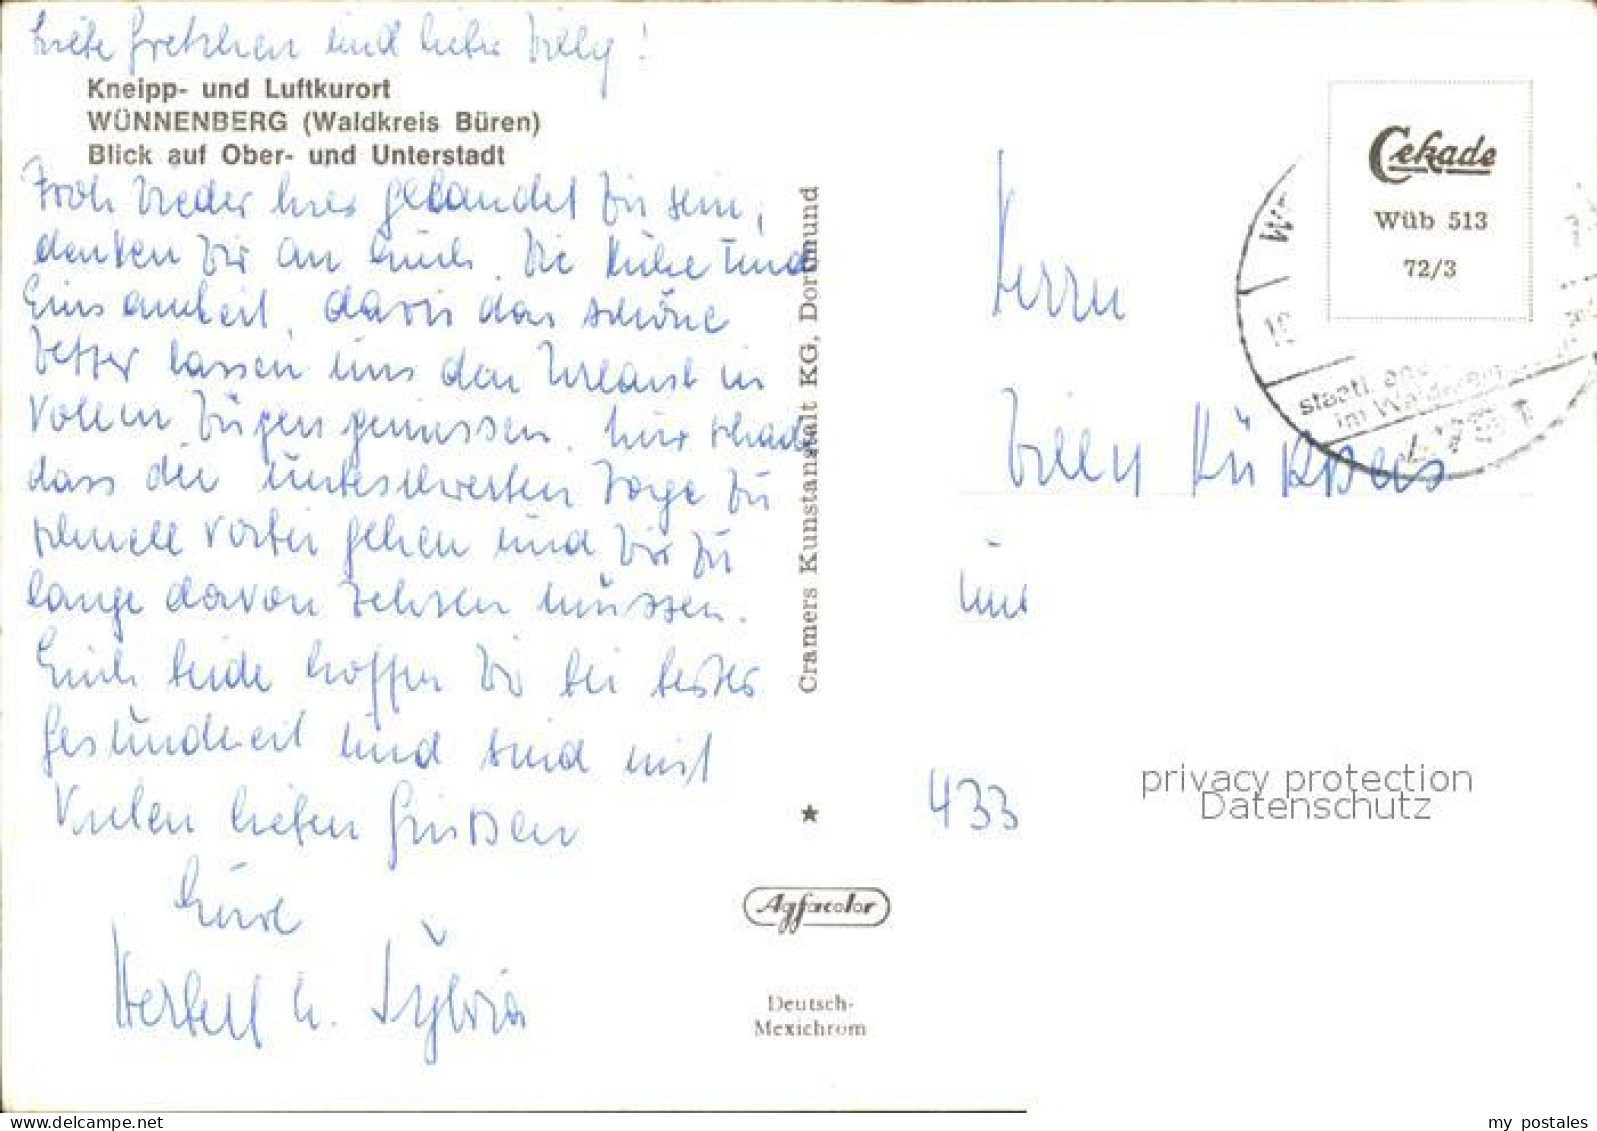 Liebe Gretchen und lieber Willy!
Kneipp- und Luftkurort
WÜNNENBERG (Waldkreis Büren)
Blick auf Ober- und Unterstadt
Froh wieder hier gelandet zu sein,
denken wir an Euch. Die Ruhe und
Einsamkeit, das schöne
Wetter lassen uns den Urlaub in
vollen Zügen geniessen. Nur schade
dass die unbeschwerten Tage zu
schnell vorbei gehen und wir zu
lange davon zehren müssen.
Euch beide hoffen wir bei bester
Gesundheit und sind mit
vielen lieben Grüßen
Eure
Herbert u. Sylvia
Cramers Kunstanstalt KG, Dortmund
★
Agfacolor
Deutsch-
Mexichrom
Cekade
Wüb 513
72/3
staatl. ane
im Wald
Herrn
Willy Küppers
und
433
privacy protection
Datenschutz
my postales